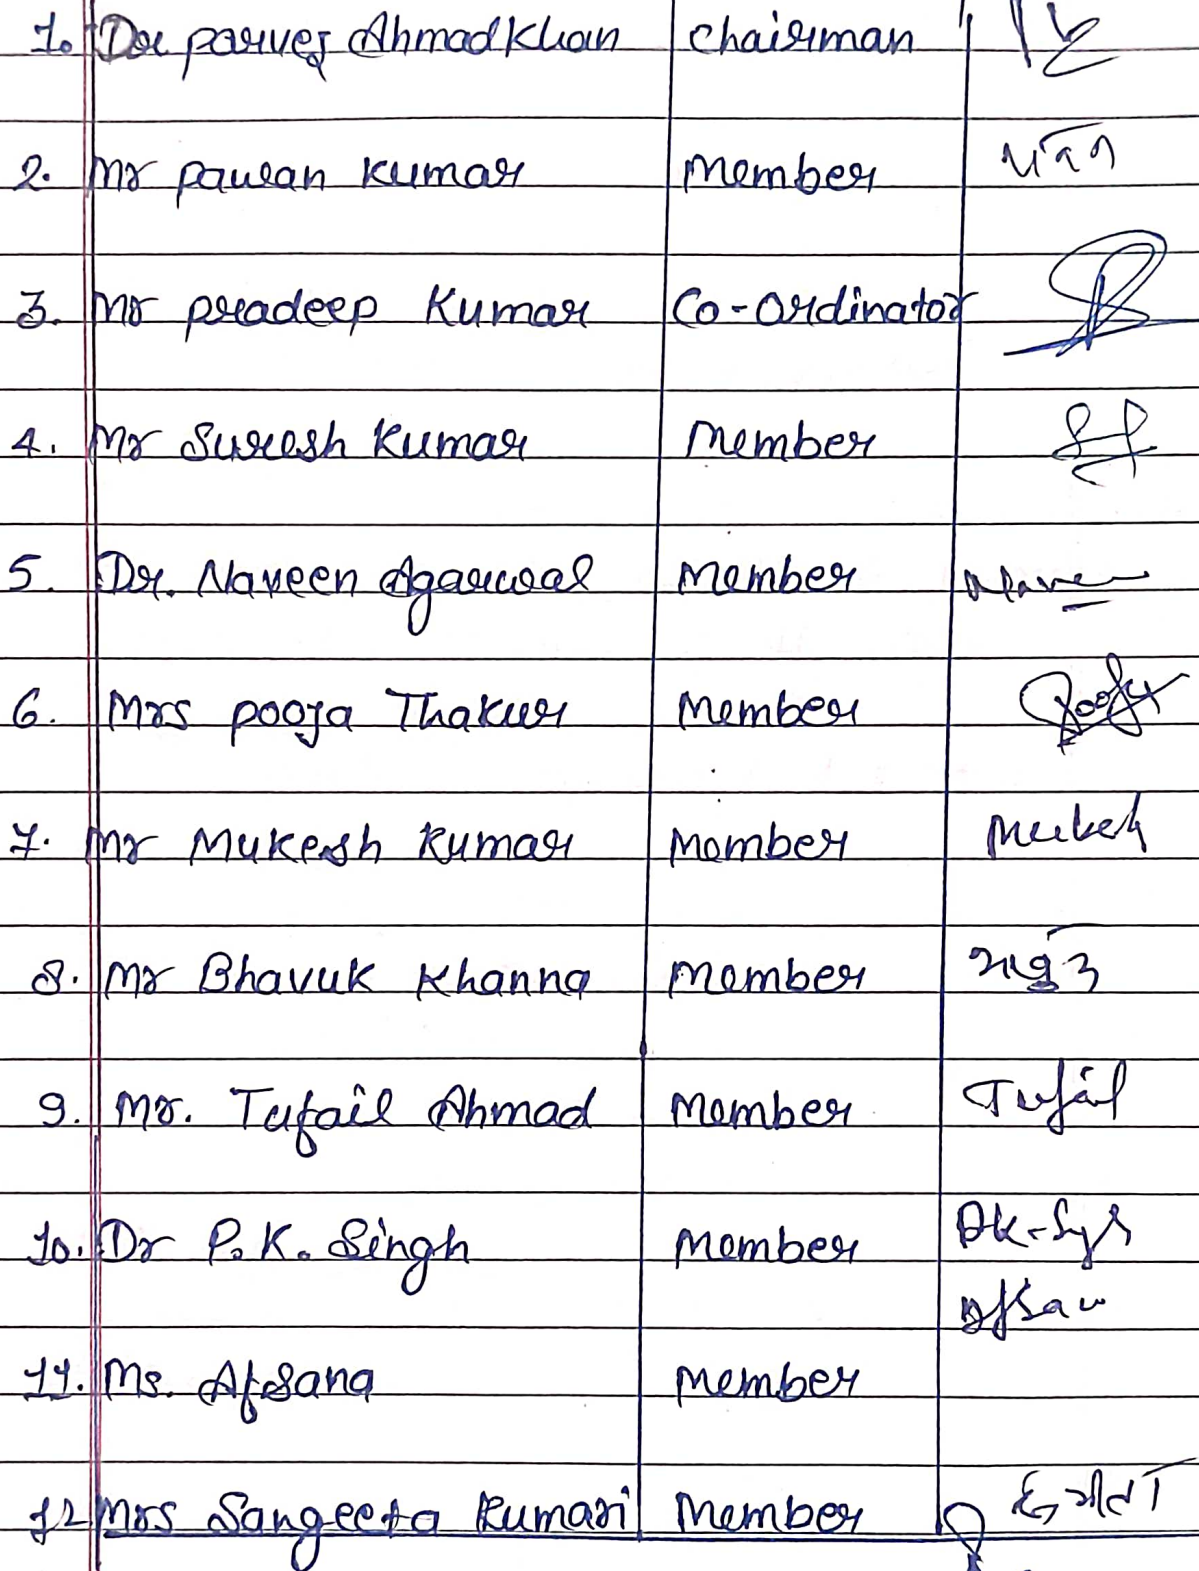 1. Dr parvez Ahmad Khan chairman
2. Mr pawan kumar Member पवन
3. Mr pradeep Kumar Co-ordinator
4. Mr Suresh Kumar Member
5. Dr. Naveen Agarwal Member Naveen
6. Mrs pooja Thakur Member Pooja
7. Mr Mukesh Kumar Member Mukesh
8. Mr Bhavuk Khanna Member
9. Mr. Tufail Ahmad Member Tufail
10. Dr P.K. Singh Member
11. Ms. Afsana Member
12 Mrs Sangeeta Kumari Member